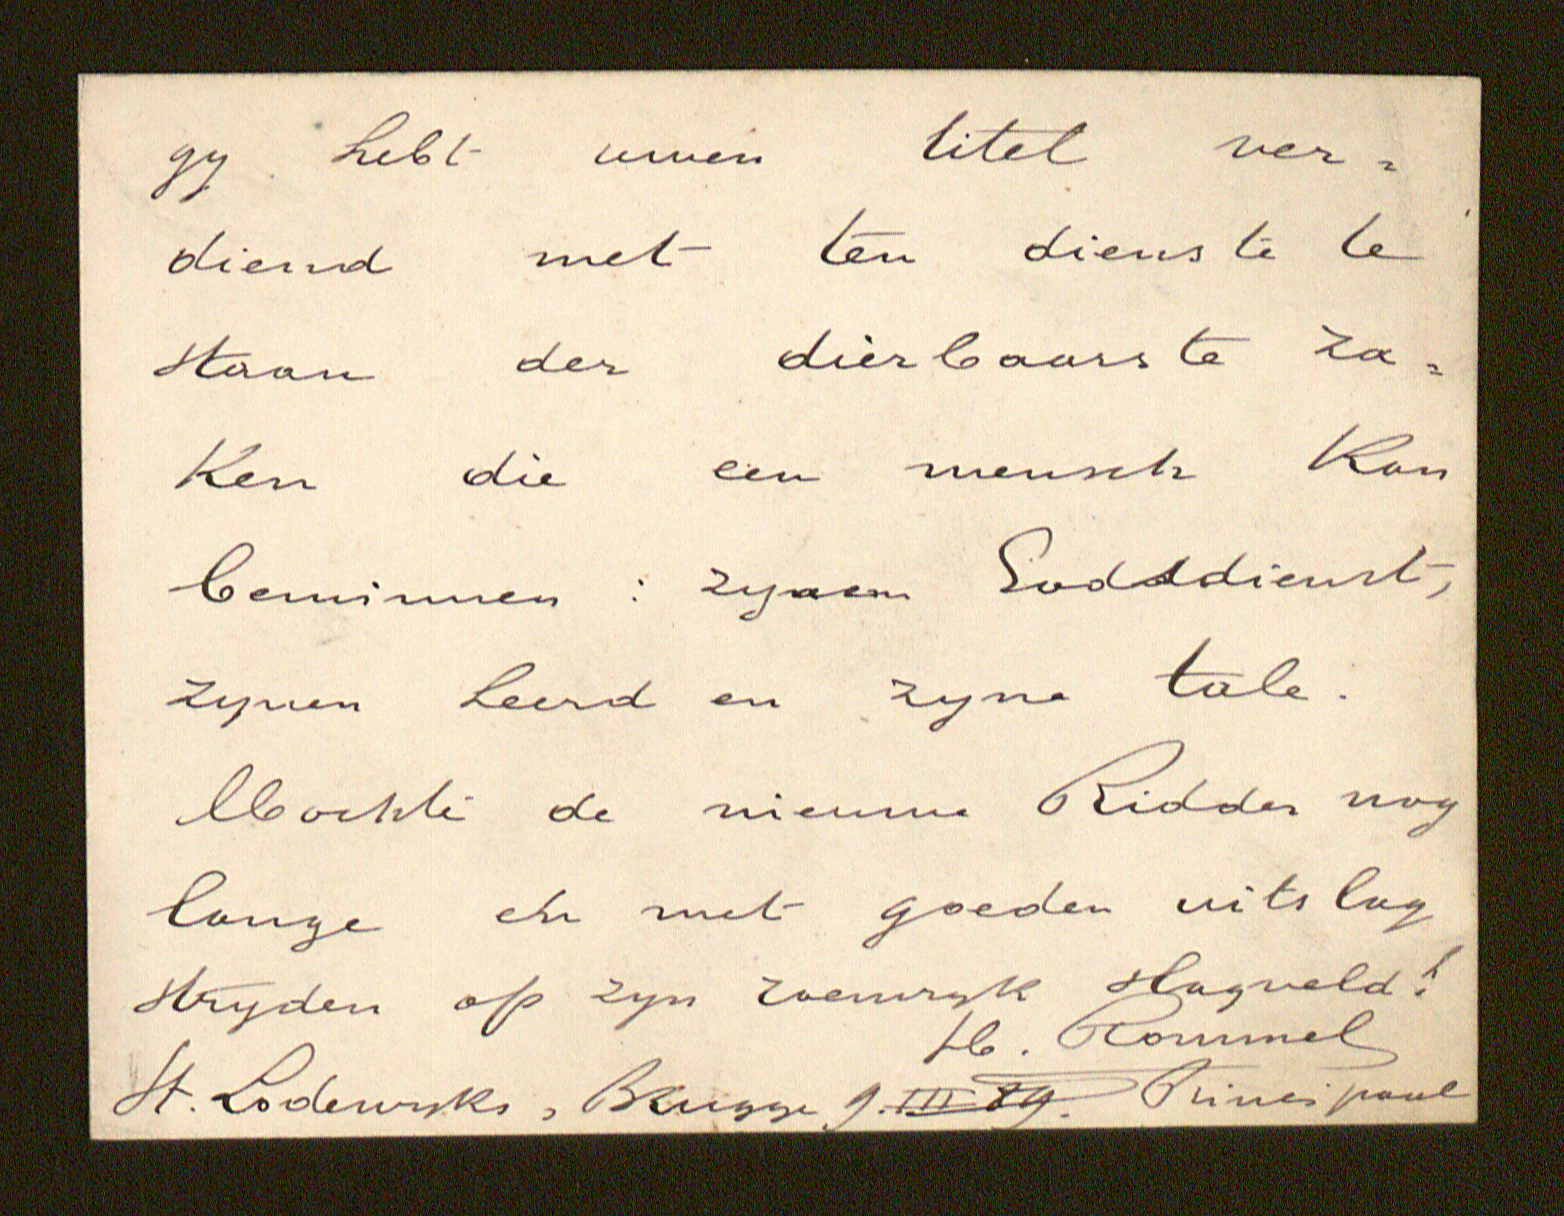 gy hebt uwen titel ver=
diend met ten dienste te
staan der dierbaarste za=
ken die een mensch kan
beminnen : zynen Godsdienst,
zynen heerd en zyne tale.
Mochte de nieuwe Ridder nog
lange en met goeden uitslag
stryden op zyn roemryk slagveld!
H. Rommel
St. Lodewyks, Brugge 9.III 89. Principaal